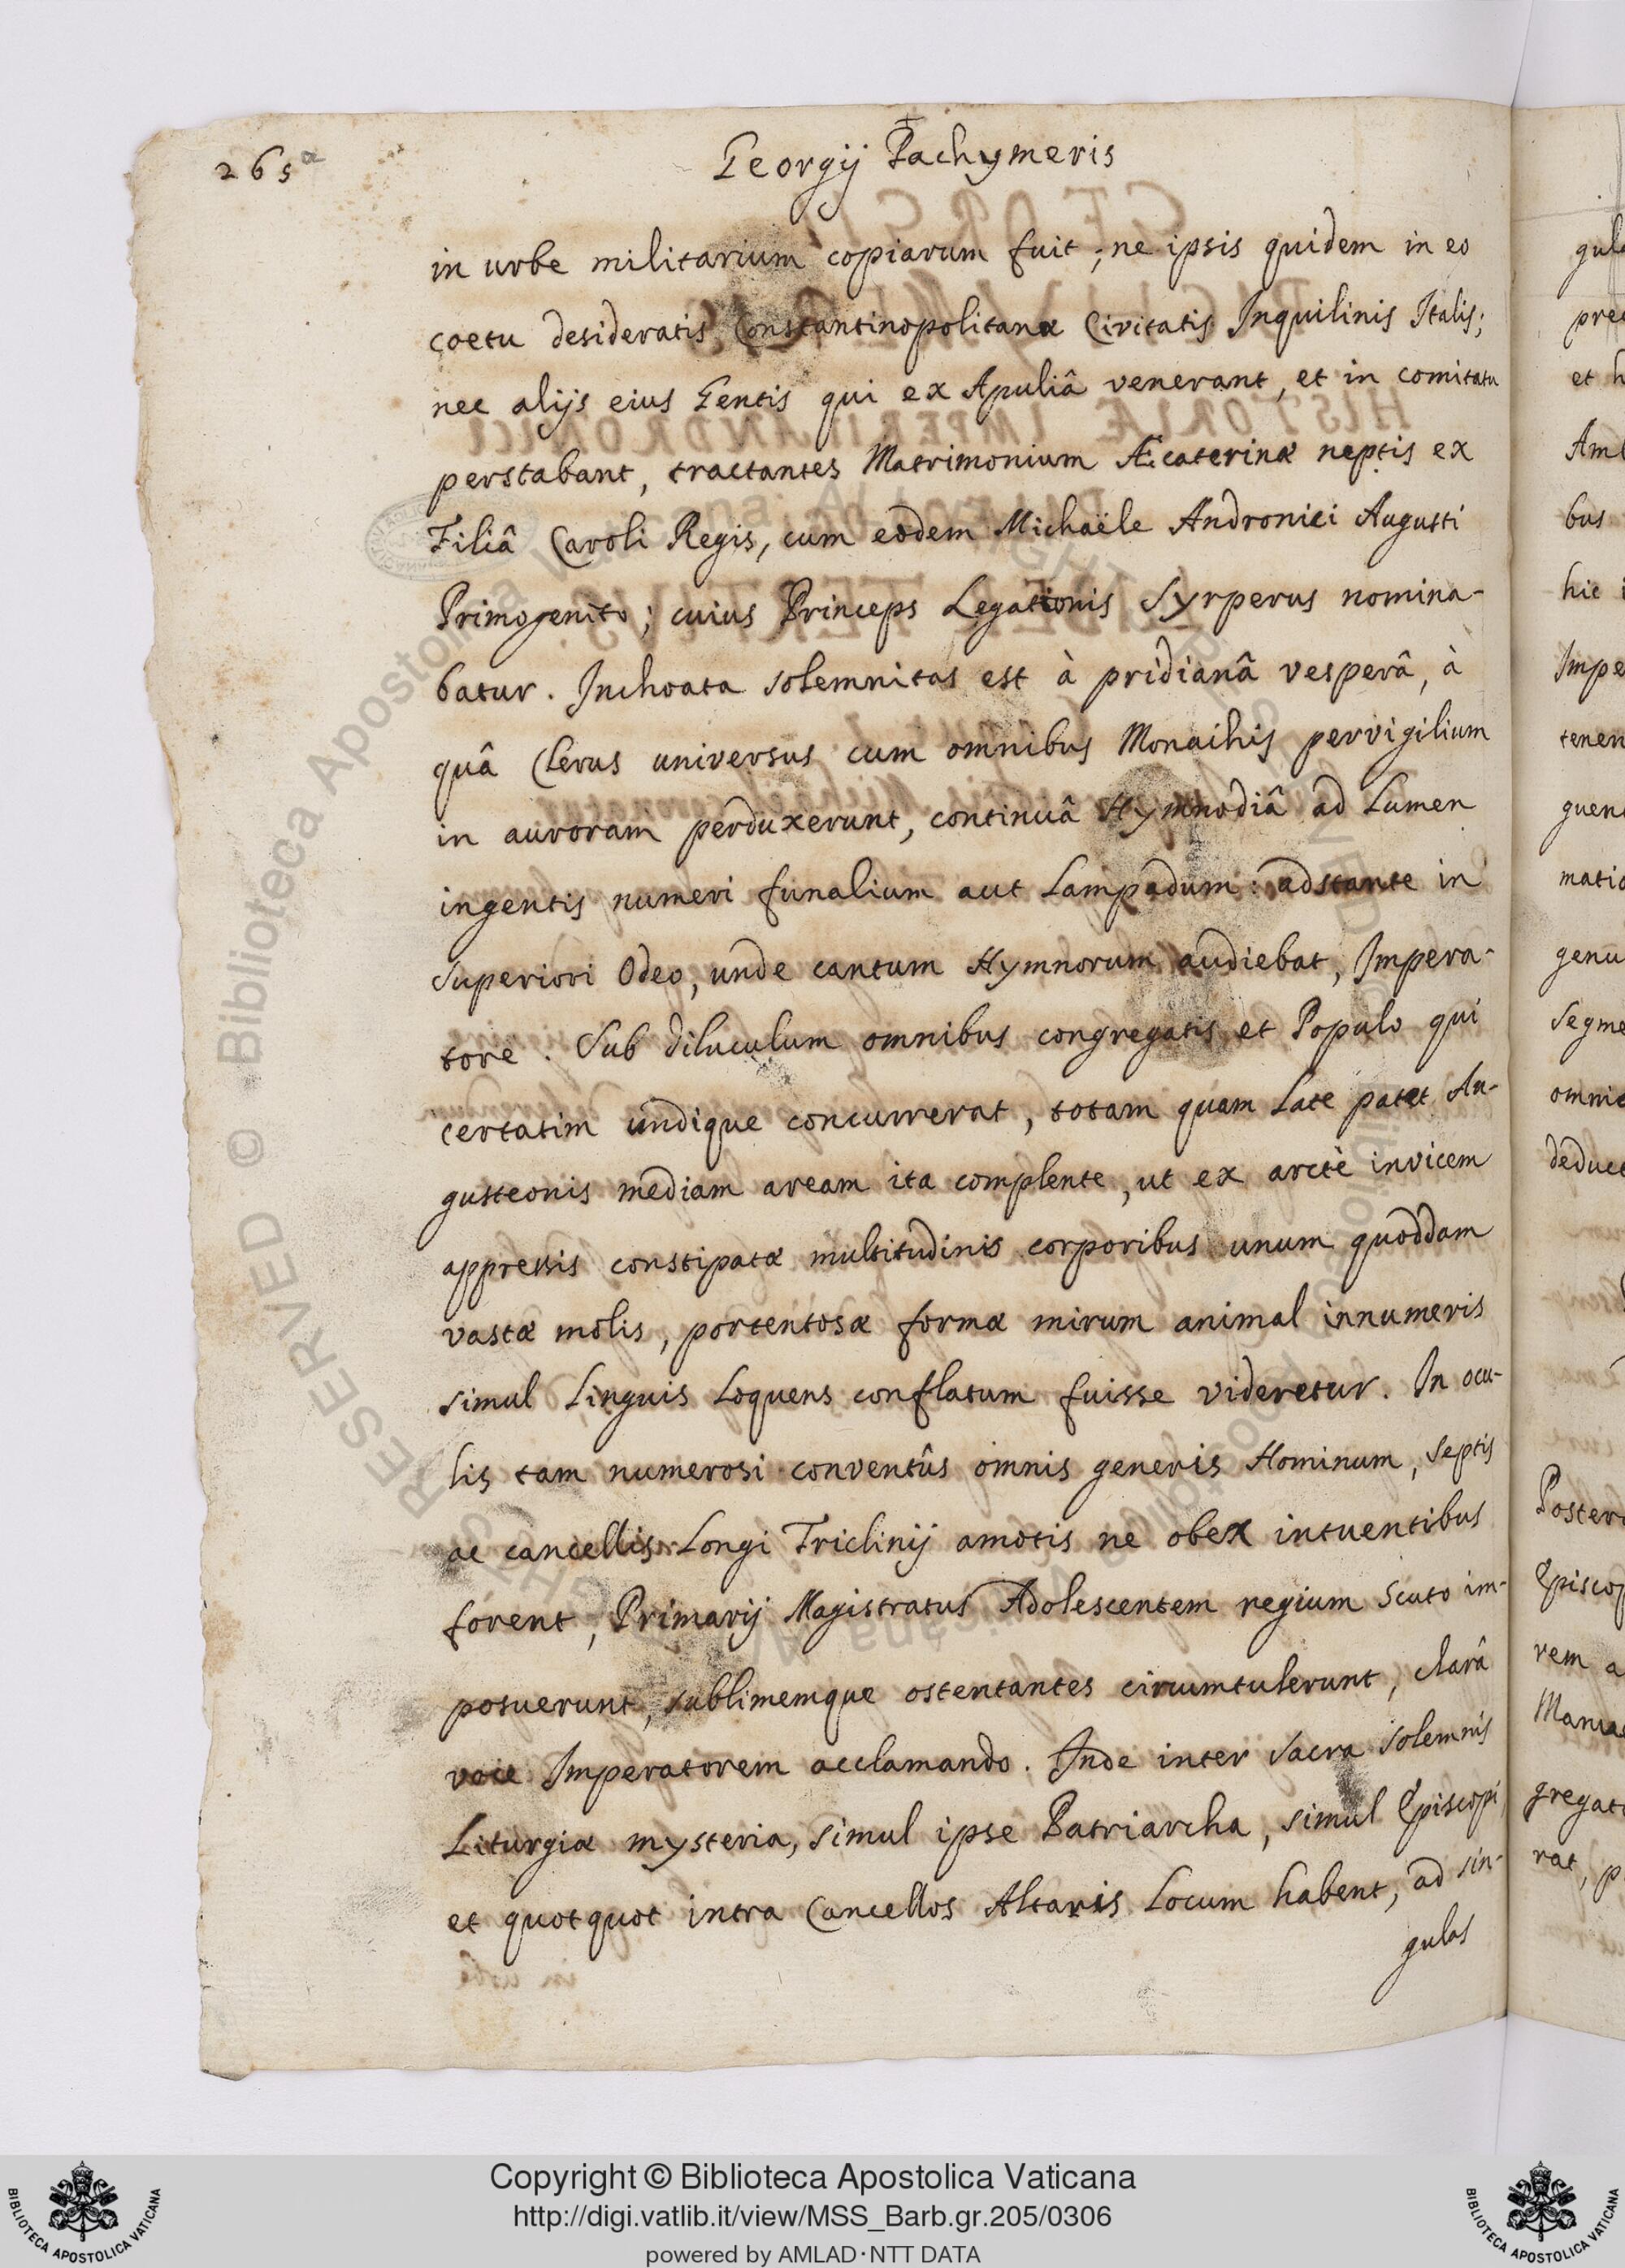 265a
Georgij Pachymeris
in urbe militarium copiarum fuit; ne ipsis quidem in eo
coetu desideratis Constantinopolitanæ Civitatis Inquilinis Italis;
nec alijs eius Gentis qui ex Apuliâ venerant, et in comitatu
perstabant, tractantes Matrimonium Æcaterinæ neptis ex
Filiâ Caroli Regis, cum eodem Michaële Andronici Augusti
Primogenito; cuius Princeps Legationis Syrperus nomina-
batur. Inchoata solemnitas est à pridianâ vesperâ, à
quâ Clerus universus cum omnibus Monachis pervigilium
in auroram perduxerunt, continuâ Hymnodiâ ad Lumen
ingentis numeri funalium aut Lampadum: adstante in
superiori Odeo, unde cantum Hymnorum audiebat, Impera-
tore. Sub diluculum omnibus congregatis et Populo qui
certatim undique concurrerat, totam quam Late patet Au-
gusteonis mediam aream ita complente, ut ex arctè invicem
appressis constipatæ multitudinis corporibus unum quoddam
vastæ molis, portentosæ formæ mirum animal innumeris
simul Linguis Loquens conflatum fuisse videretur. In ocu-
lis tam numerosi conventûs omnis generis Hominum, septis
ac cancellis Longi Triclinij amotis ne obex intuentibus
forent, Primarij Magistratus Adolescentem regium Scuto im-
posuerunt, sublimemque ostentantes circumtulerunt, clarâ
voce Imperatorem acclamando. Inde inter sacra solemnis
Liturgiæ mysteria, simul ipse Patriarcha, simul Episcopi
et quotquot intra Cancellos Altaris Locum habent, ad sin-
gulas
Copyright © Biblioteca Apostolica Vaticana
http://digi.vatlib.it/view/MSS_Barb.gr.205/0306
powered by AMLAD·NTT DATA
BIBLIOTECA APOSTOLICA VATICANA
BIBLIOTECA APOSTOLICA VATICANA